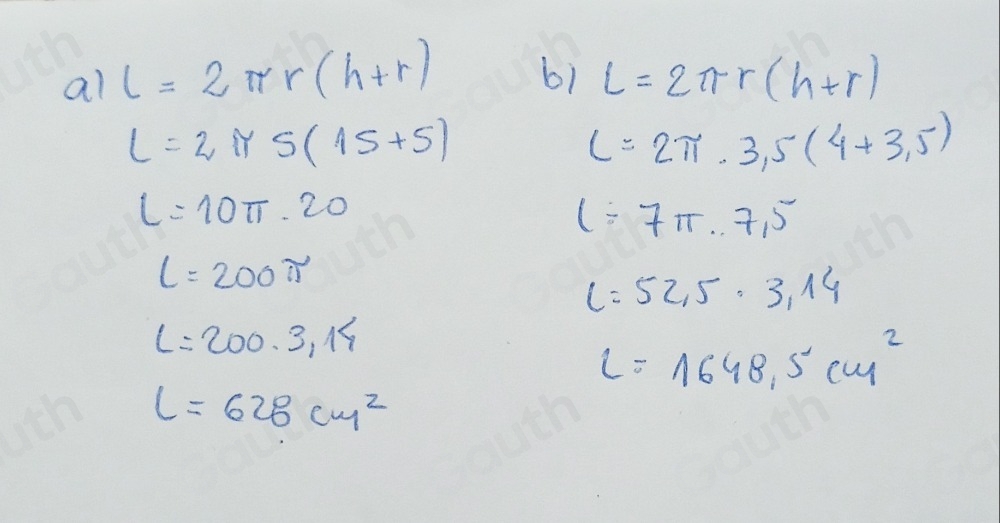 a) L = 2πr(h+r)
L = 2π5(15+5)
L = 10π . 20
L = 200π
L = 200 . 3,14
L = 628 cm²
b) L = 2πr(h+r)
L = 2π . 3,5(4+3,5)
L = 7π . . 7,5
L = 52,5 . 3,14
L = 1648,5 cm²